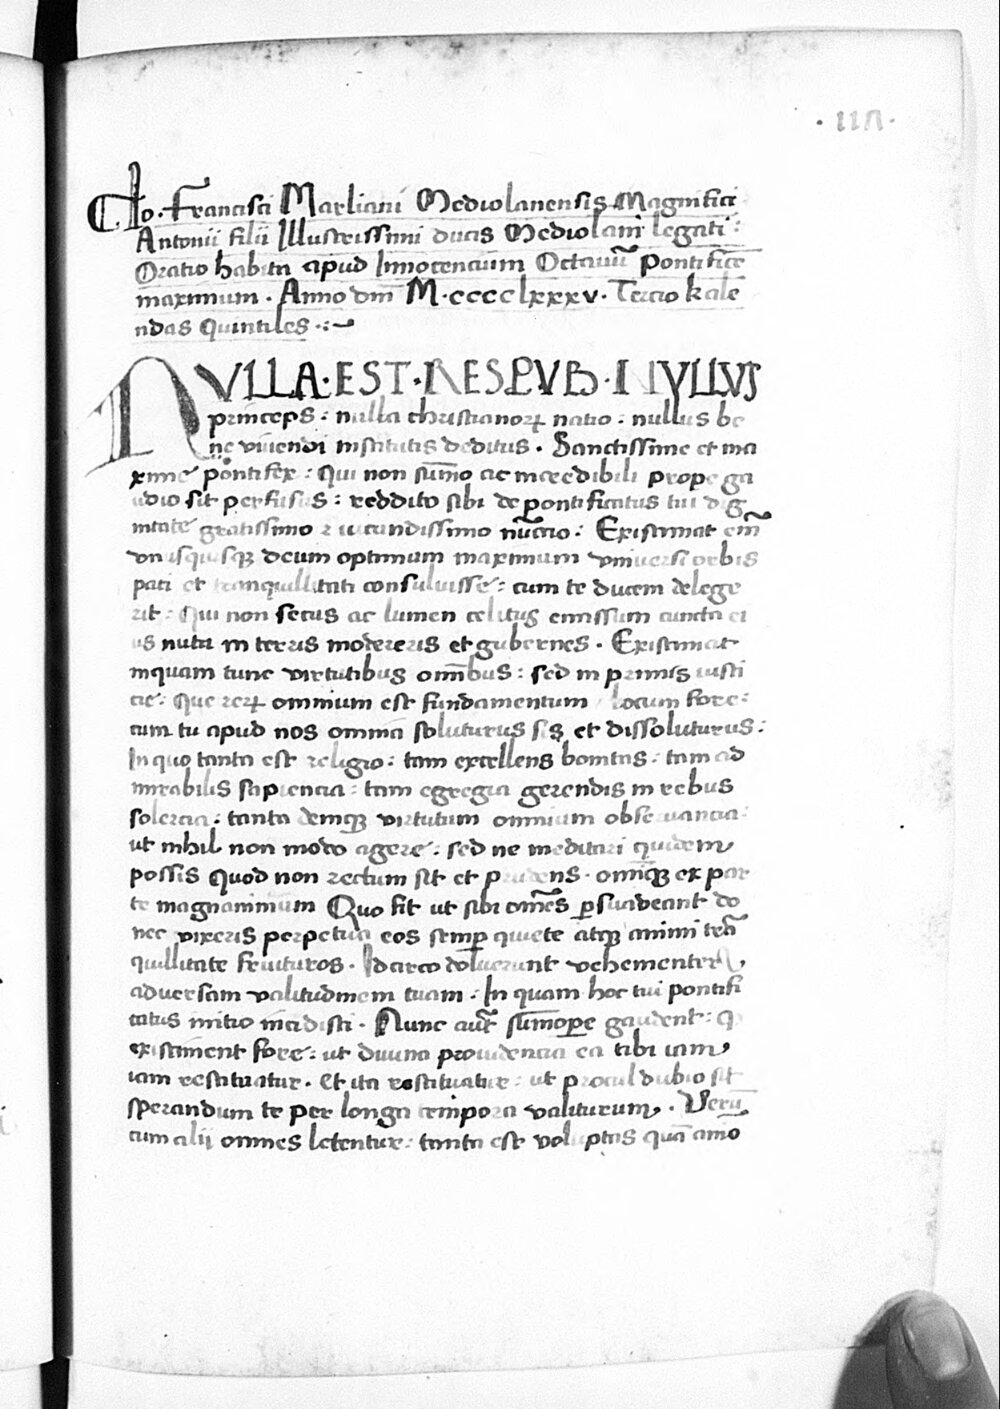 · 117 ·
Io. Francisci Marliani Mediolanensis Magnifici
Antonii filii Illustrissimi ducis Mediolani legati :
Oratio habita apud Innocencium Octauū Pontificē
maximum . Anno dn̄i M.cccclxxxv. Tercio kale
ndas Quintiles .:~
NVLLA·EST·RESPVB·NVLLVS
princeps : nulla christianoꝝ natio : nullus be
ne viuendi institutis deditus . Sanctissime et ma
xime pontifex : Qui non sūmo ac incredibili prope ga
udio sit perfusus : reddito sibi de pontificatus tui dig
nitate gratissimo ⁊ iucundissimo nūctio : Existimat em̄
vnusquisqꝫ deum optimum maximum vniuersi orbis
pati et tranquillitati consuluisse : cum te ducem delege
rit : Qui non secus ac lumen celitus emissum cuncta ei
us nutu in terris modereris et gubernes . Existimat
inquam tunc virtutibus omn̄ibus : sed in primis iusti
cie : Que reꝝ omnium est fundamentum locum fore :
cum tu apud nos omnia soluturus sis et dissoluturus :
In quo tanta est religio : tam excellens bonitas : tam ad
mirabilis sapiencia : tam egregia gerendis in rebus
solercia : tanta deniqꝫ virtutum omnium obseruancia :
ut nihil non modo agere : sed ne meditari quidem
possis Quod non rectum sit et prudens . omniqꝫ ex par
te magnanimum Quo fit ut sibi omēs ꝑsuadeant do
nec vixeris perpetua eos semꝑ quiete atqꝫ animi trā
quillitate fruituros . Idcirco doluerunt vehementer
aduersam valitudinem tuam : In quam hoc tui pontifi
catus initio incidisti . Nunc aut̄ sūmoꝑe gaudent :
existiment fore : ut diuina prouidencia ea tibi iam
iam restituatur . Et ita restituatur : ut procul dubio sit
sperandum te per longa tempora valiturum . Verū
cum alii omnes letentur : tanta est voluptas quā animo